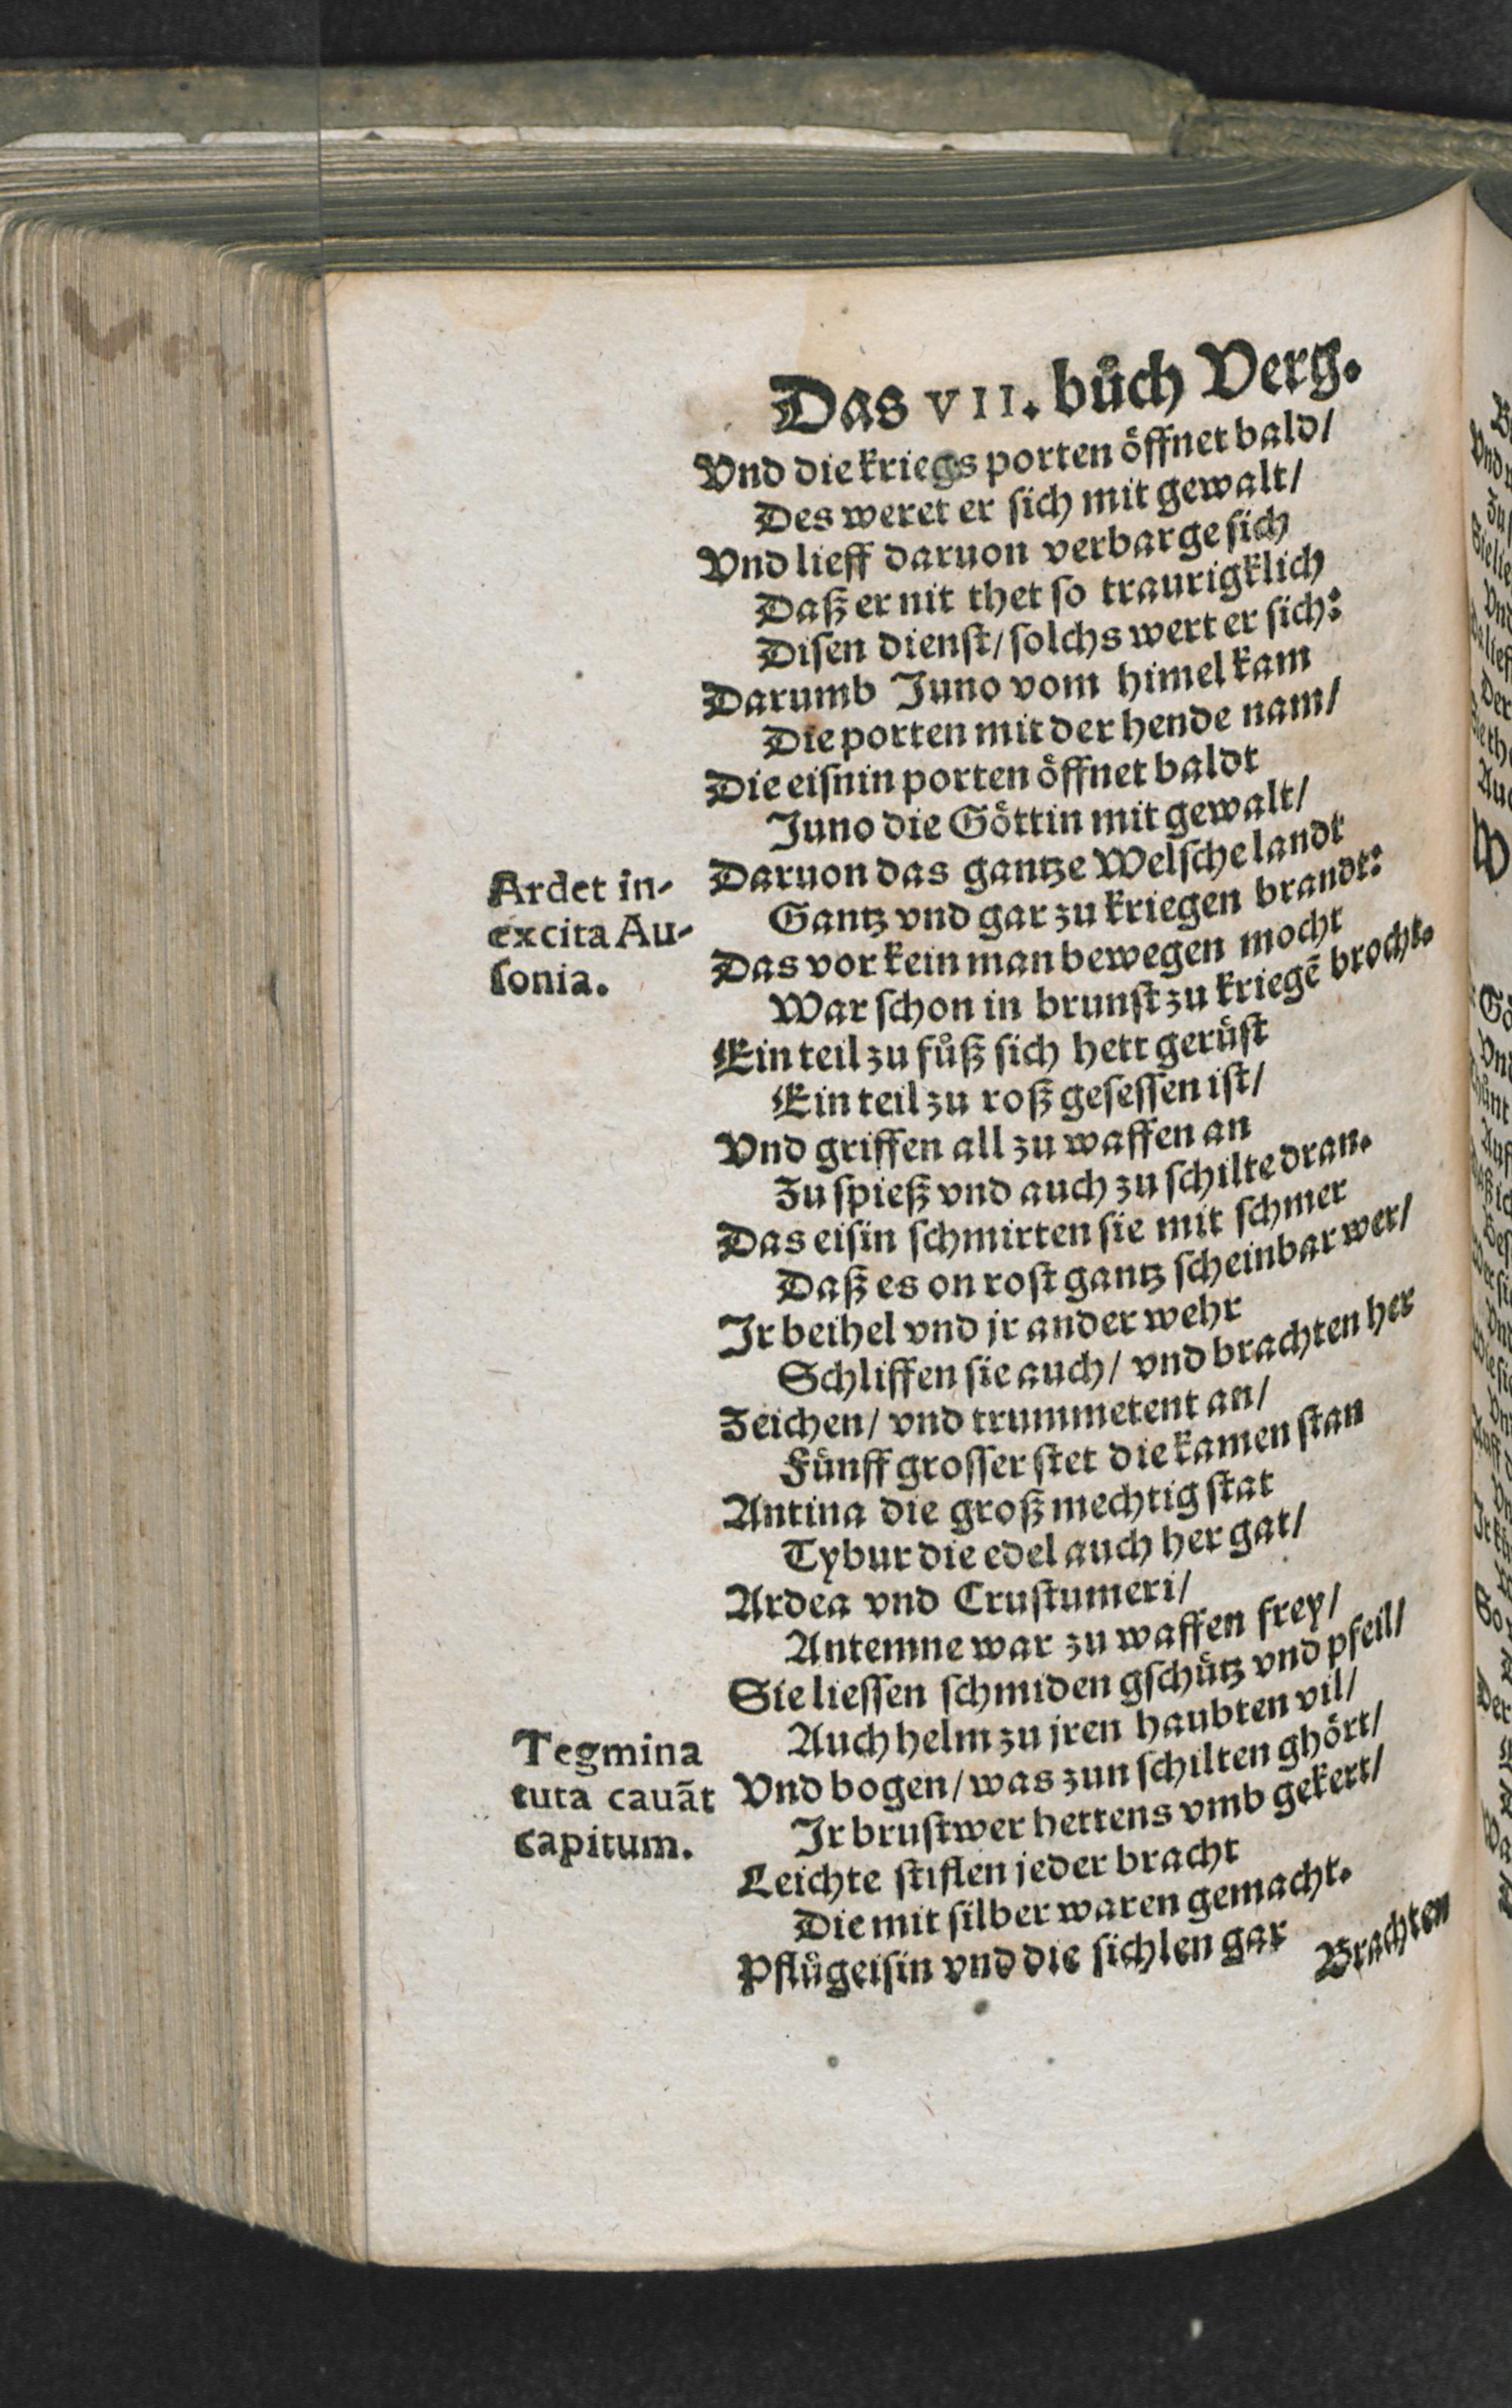 Das VII. bůch Verg.
Vnd die kriegs porten öffnet bald/
Des weret er sich mit gewalt/
Vnd lieff daruon verbarge sich
Daß er nit thet so traurigklich
Disen dienst/ solchs wert er sich:
Darumb Juno vom himel kam
Die porten mit der hende nam/
Die eisnin porten öffnet baldt
Juno die Göttin mit gewalt/
Ardet in-
excita Au-
sonia.
Daruon das gantze Welsche landt
Gantz vnd gar zu kriegen brandt:
Das vor kein man bewegen mocht
War schon in brunst zu kriegē brocht.
Ein teil zu fůß sich hett gerüst
Ein teil zu roß gesessen ist/
Vnd griffen all zu waffen an
Zu spieß vnd auch zu schilte dran.
Das eisin schmirten sie mit schmer
Daß es on rost gantz scheinbar wer/
Ir beihel vnd jr ander wehr
Schliffen sie auch/ vnd brachten her
Zeichen/ vnd trummetent an/
Fünff grosser stet die kamen stan
Antina die großmechtig stat
Tybur die edel auch her gat/
Ardea vnd Crustumeri/
Antemne war zu waffen frey/
Sie liessen schmiden gschütz vnd pfeil/
Auch helm zu jren haubten vil/
Tegmina
tuta cauãt
capitum.
Vnd bogen/ was zun schilten ghört/
Ir brustwer hettens vmb gekert/
Leichte stiflen jeder bracht
Die mit silber waren gemacht.
Pflůgeisin vnd die sichlen gar
Brachten